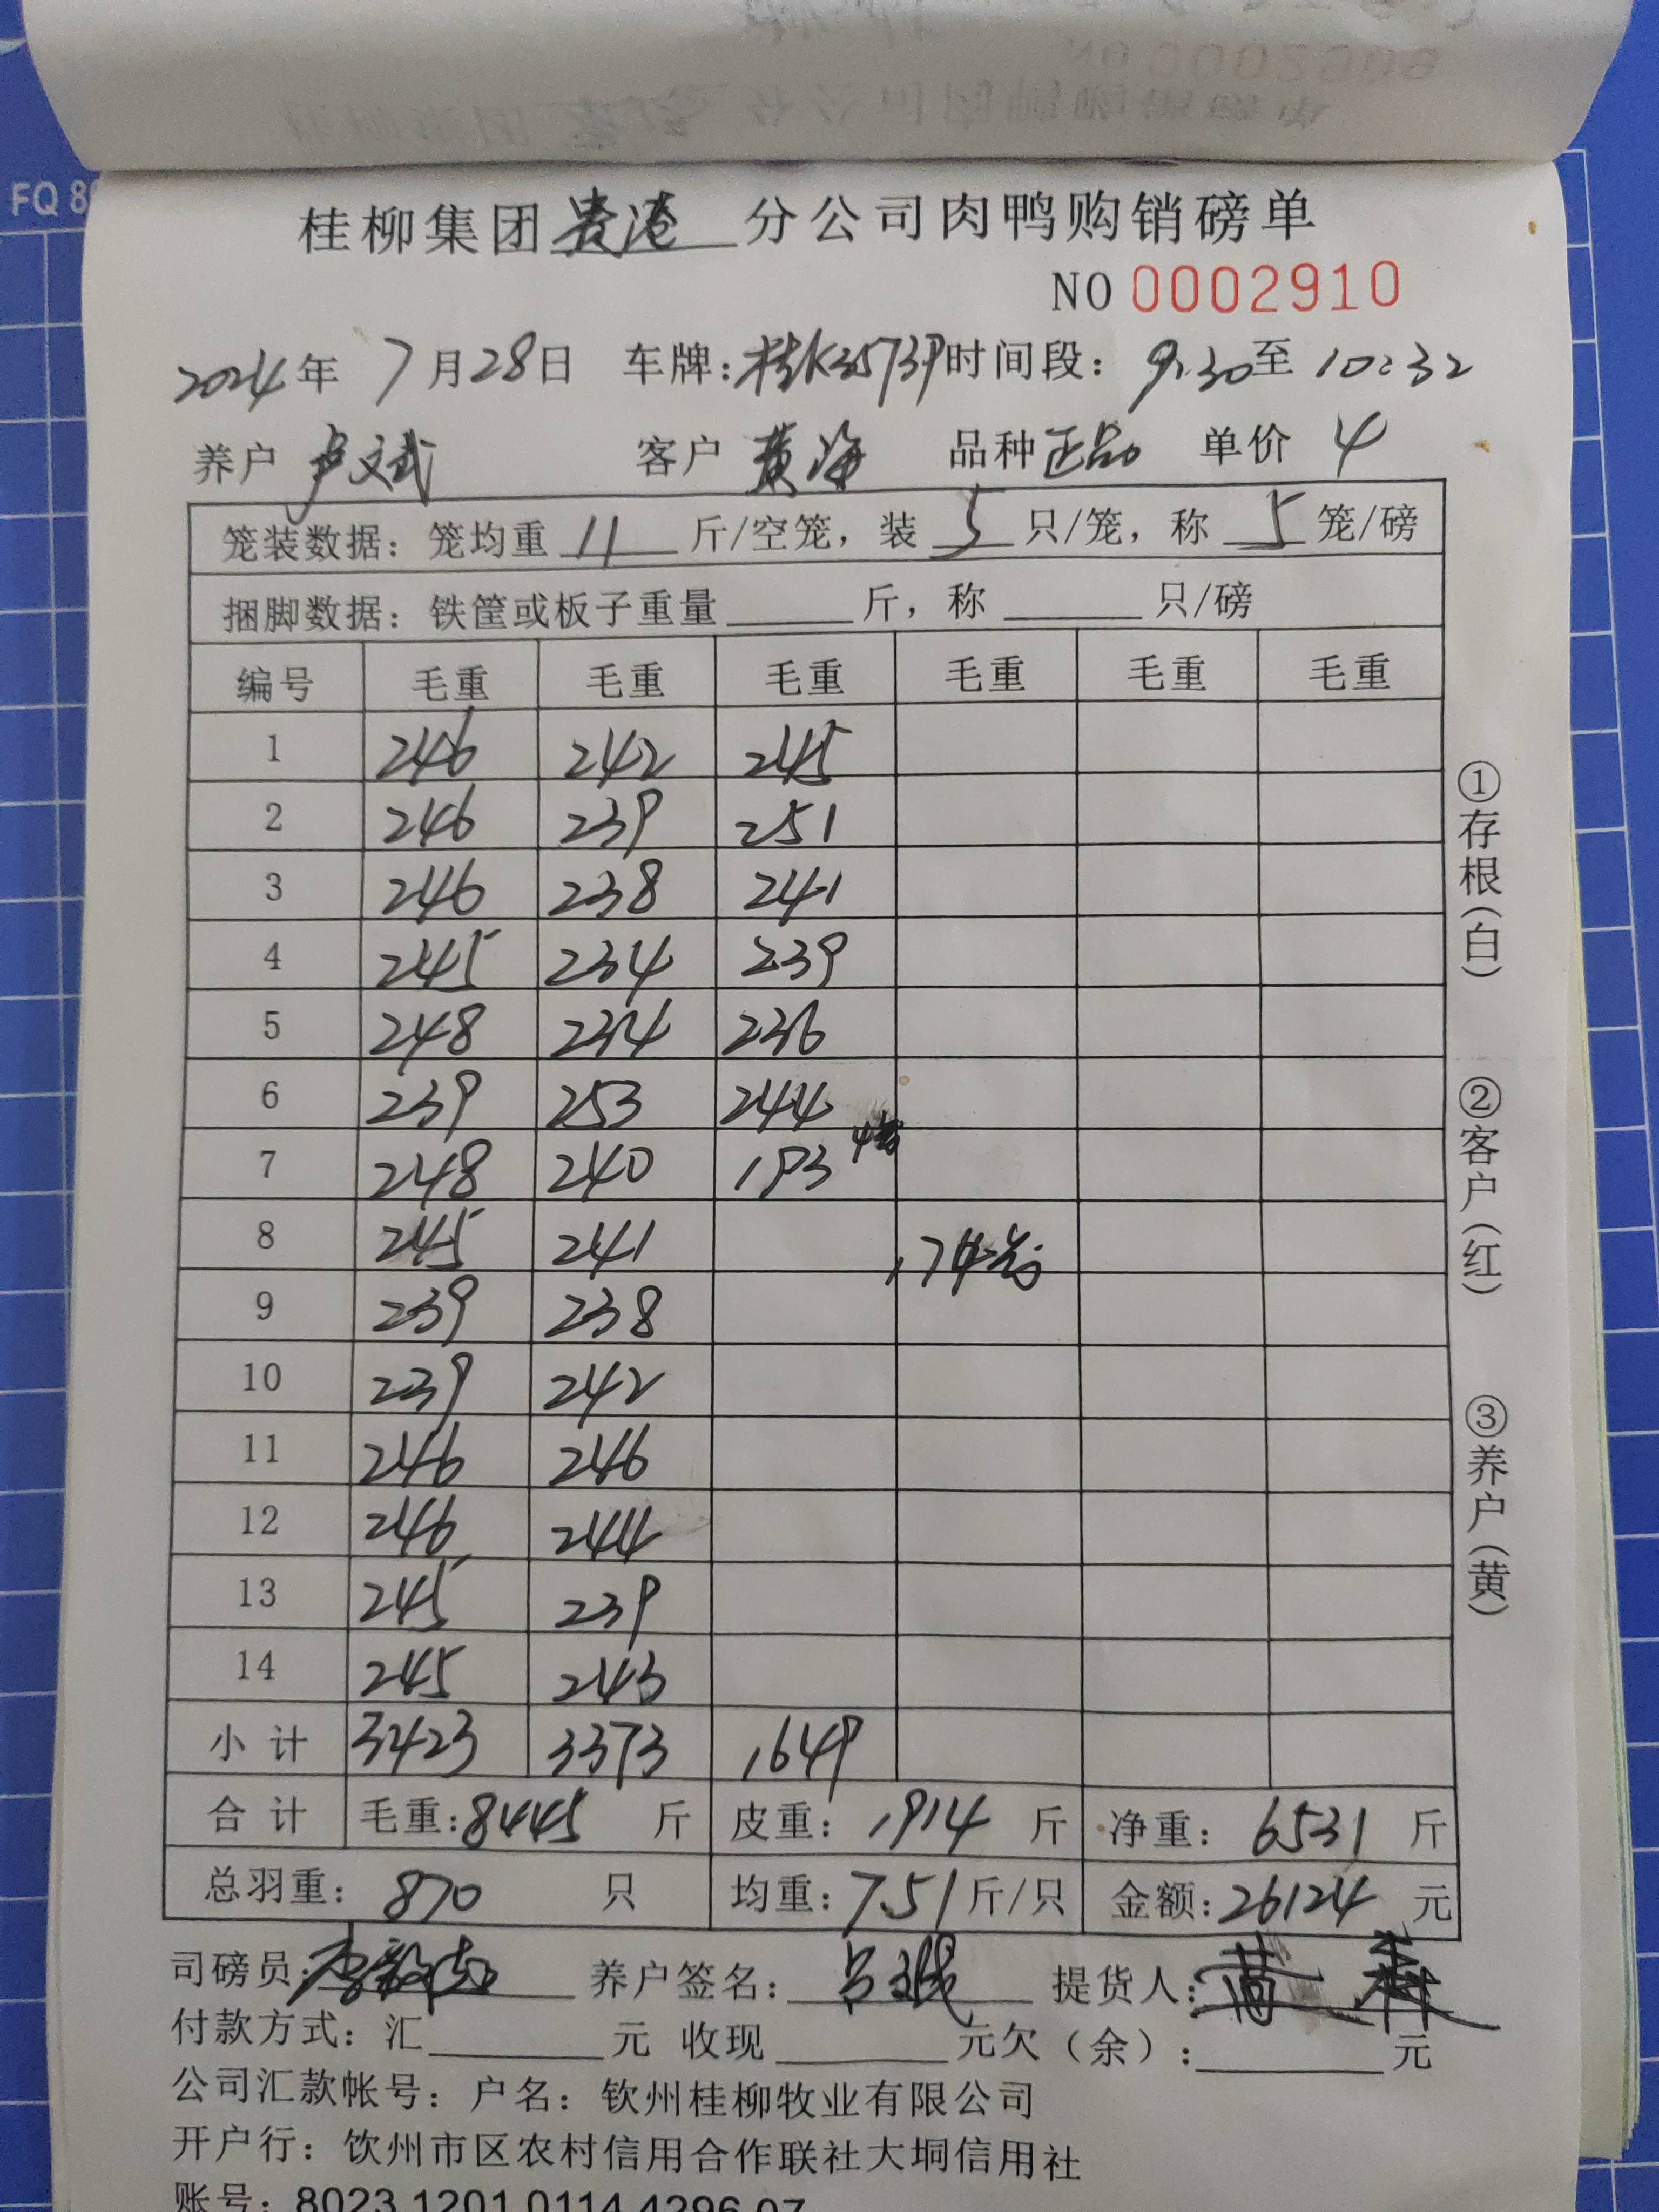 FQ 8
NO 0002908
桂柳集团贵港分公司肉鸭购销磅单
NO 0002910
2024年 7月28日 车牌:桂K35739时间段: 9:30至 10:32
养户 卢文武 客户 黄海 品种 正品 单价 4
笼装数据: 笼均重 11 斤/空笼, 装 5 只/笼, 称 5 笼/磅
捆脚数据: 铁筐或板子重量 斤, 称 只/磅
编号 毛重 毛重 毛重 毛重 毛重 毛重
1 246 242 245
2 246 239 251
3 246 238 241
4 245 234 239
5 248 234 236
6 239 253 244
7 248 240 193 4笼
8 245 241 174笼
9 239 238
10 239 242
11 246 246
12 246 244
13 245 239
14 245 243
小计 3423 3373 1649
合计 毛重:8445 斤 皮重: 1914 斤 净重: 6531 斤
总羽重: 870 只 均重:7.51斤/只 金额:26124 元
司磅员: 养户签名: 提货人:
付款方式: 汇 元 收现 元欠(余): 元
公司汇款帐号: 户名: 钦州桂柳牧业有限公司
开户行: 饮州市区农村信用合作联社大垌信用社
账号: 8023 1201 0114 4296 07
①存根(白)
②客户(红)
③养户(黄)